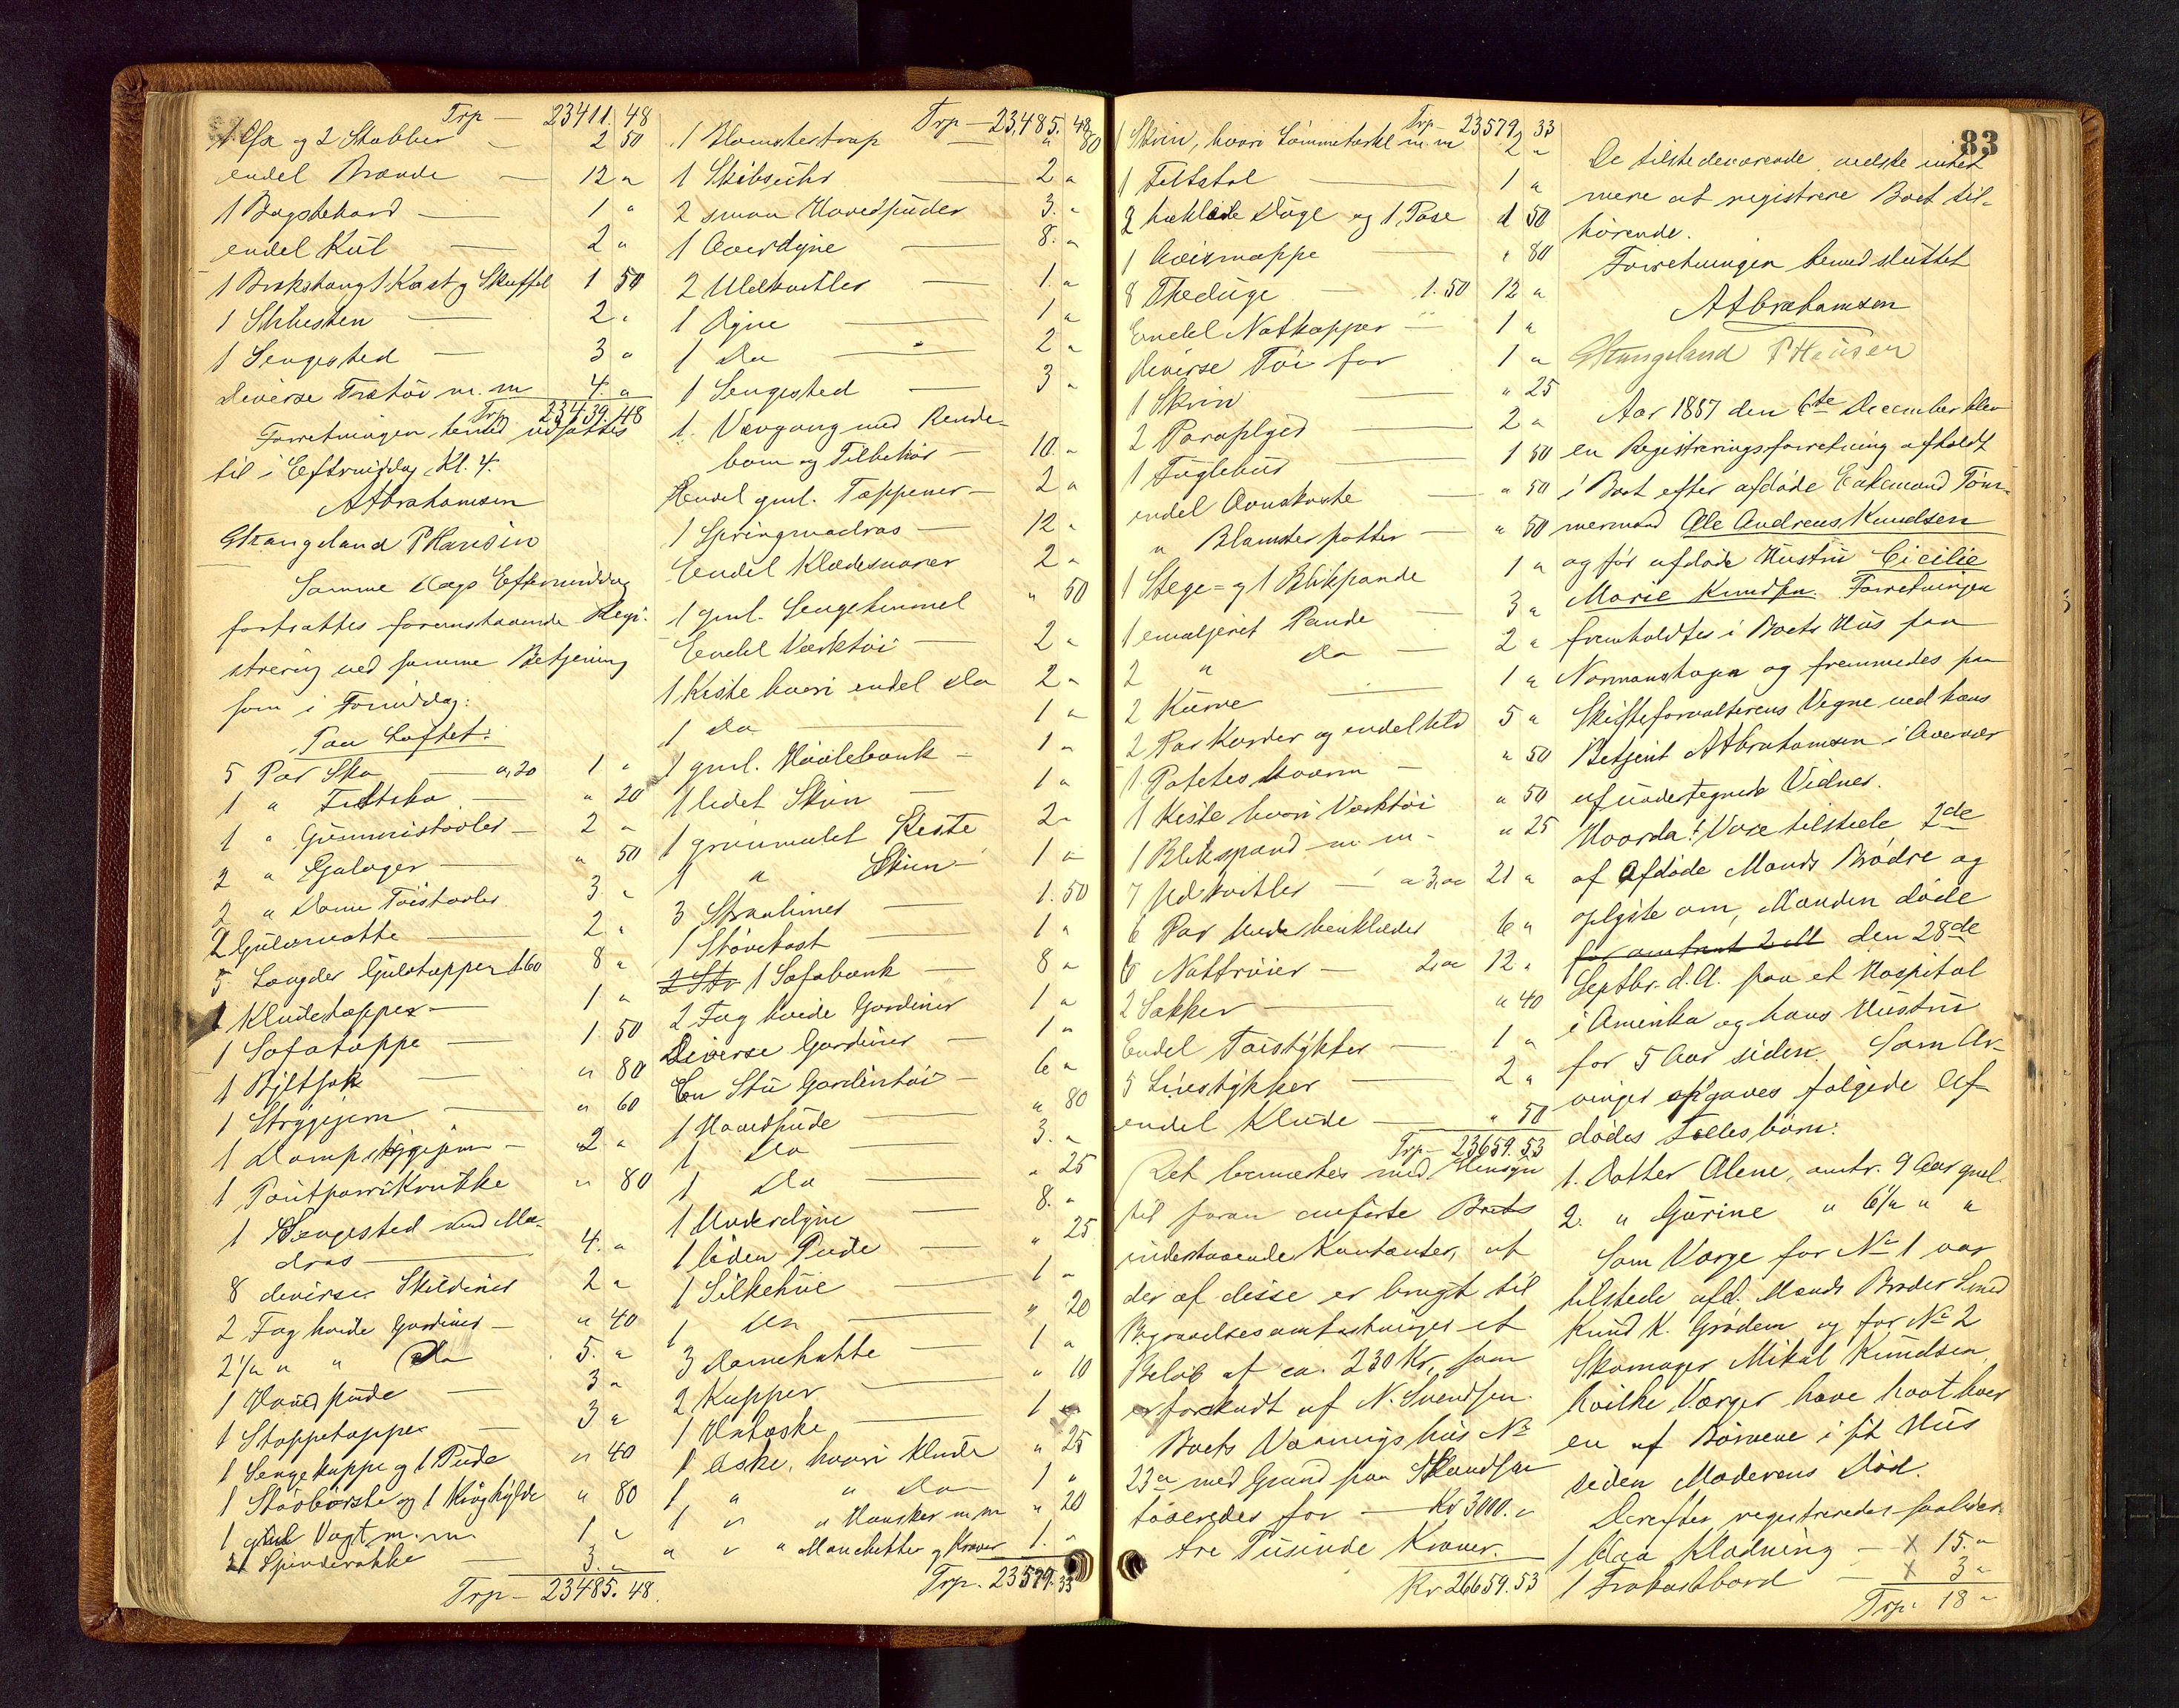 Trp — 23411.48
1 Øx og 2 Stabber — 2 50
endel Brænde — 12 "
1 Bagstebord — 1 "
endel Kul — 2 "
1 Brækstang 1 Kast og Skuffel 1 50
1 Slibesten — 2 "
1 Sengested — 3 "
Diverse Trætøi m. m 4 "
Trp 23439.48
Forretningen hermed udsattes
til i Eftermiddag Kl. 4.
A Abrahamsen
G Stangeland P Hansen
Samme Dags Eftermiddag
fortsattes foranstaaende Regi-
strering ved samme Betjening
som i Formiddag:
Paa Loftet:
5 Par Sko — a, 20 1 "
1 " Filtsko — " 20
1 " Gummistøvler — 2 "
2 " Galoger — " 50
2 " Dame Tøistøvler 3 "
2 Gulvmatte — 2 "
5 Længder Gulvtæpper 1.60 8 "
1 Kludetæpper — 1 "
1 Sofatæppe — 1 50
1 Byltsæk — " 80
1 Strygejern — " 60
1 Dampstrygejern — 2 "
1 Krukke " 80
1 Sengested med Ma-
dras — 4. "
8 diverse Skilderier 2 "
2 Fag hvide Gardiner — " 40
2 1/2 " " Do 5. "
1 Hovedpude — 3 "
1 Stoppetæppe — 3 "
1 Sengetæppe og 1 Pude " 40
1 Støvbørste og 1 Kroghylde " 80
1 gml Vægt m. m. 1 "
2 Spinderokke — 3. "
Trp — 23485.48.
Trp — 23,485.48
1 Blomstertrap — " 80
1 Skibsuhr — 2 "
2 smaa Hovedpuder 3. "
1 Overdyne — 8. "
2 Uldkvitler — 1. "
1 Dyne — 1 "
1 Do — 2 "
1 Sengested — 3 "
1 Vævgang med Rende-
bom og Tilbehør — 10. "
Endel gml. Tæppener — 2 "
1 Springmadras — 12 "
Endel Klædesvarer 2 "
1 gml. Sengehimmel " 50
Endel Værktøi — 2 "
1 Kiste hvori endel Do 2 "
1 Do — 1 "
1 gml. Høvlebænk — 1 "
1 lidet Skrin — 1 "
1 grønmalet Kiste 2 "
1 " Skrin — 1 "
3 Straaliner — 1.50
1 Støvekost — 1 "
2 Str 1 Sofabænk — 8 "
2 Fag hvide Gardiner 1 "
Diverse Gardiner — 1 "
En Stu Gardintøi — 6 "
1 Hovedpude — " 80
1 Do — 3. "
1 Do — " 25
1 Underdyne — 8. "
1 liden Pude — " 25
1 Silkehue — 1 "
1 Do — " 20
3 Damehatte — 1 "
2 Kapper — " 10
1 Hatæske — 1 "
1 Æske, hvori Klude " 25
1 " " Do 1 "
1 " " Hansker m.m " 20
" " " Manchetter og Kraver 1. "
Trp. 23579.33
Trp — 23579.33
1 Skrin, hvori Sømmetøi m.m 2 "
1 Feltstol — 1 "
2 heklede Duge og 1 Pose 1 50
1 Avismappe — " 80
8 Theduge — 1.50 12 "
Endel Natkapper — 1 "
diverse Tøi for 1 "
1 Skrin " 25
2 Paraplyer — 2 "
1 Fuglebur — 1 50
endel Ovnskoste — " 50
" Blomsterpotter — " 50
1 Stege- og 1 Blikpande 1 "
1 emaljeret Pande — 3 "
2 " Do — 2 "
2 Kurve — 1 "
2 Par Karder og endel Uld 5 "
1 Potetes — " 50
1 Kiste hvori Værktøi " 50
1 Blikspand m m — " 25
7 Uldkvitler — a 3,00 21 "
6 Par Underbenklæder 6 "
6 Nattrøier — 2,00 12 "
2 Sækker — " 40
Endel Tøistykker — 1 "
5 Livstykker — 2 "
endel Klude — " 50
Trp — 23659.53
Det bemærkes med Hensyn
til foran anførte Boets
indestaaende Kontanter, at
der af disse er brugt til
Begravelsesomkostninger et
Beløb af ca. 230 Kr, som
er forskudt af N. Svendsen.
Boets Vaaningshus No
23a med Grund paa
taxeredes for — Kr 3000. "
tre Tusinde Kroner.
Kr 26659.53
83
De tilstedeværende vidste intet
mere at registrere Boet til-
hørende.
Forretningen hermed sluttet
A Abrahamsen
G Stangeland P Hansen
Aar 1887 den 6te December blev
en Registreringsforretning afholdt
i Boet efter afdøde Enkemand Tøm-
mermand Ole Andreas Knudsen
og før afdøde Hustru Cicilie
Marie Knudsen. Forretningen
fremholdtes i Boets Hus paa
og fremmedes paa
Skifteforvalterens Vegne ved hans
Betjent A Abrahamsen i Overvær
af undertegnede Vidner.
Hvorda: Vare tilstede 2de
af Afdøde Mands Brødre og
oplyste om, Manden døde
for omtrent 2 M den 28de
Septbr. d. A. paa et Hospital
i Amerika og hans Hustru
for 5 Aar siden. Som Ar-
vinger opgaves følgende Af-
dødes Fællesbørn:
1. Datter Olene, omtr. 9 Aar gml.
2. " Gurine " 6 1/2 " "
Som Værge for No 1 var
tilstede afd. Mands Broder Smed
Knud K. Grødem og for No 2
Skomager Mikal Knudsen,
hvilke Værger have havt hver
en af Børnene i sit Hus
siden Moderens Død.
Derefter registreredes saaledes
1 blaa Klædning — x 15. "
1 Frokostbord — x 3 "
Trp. 18 "